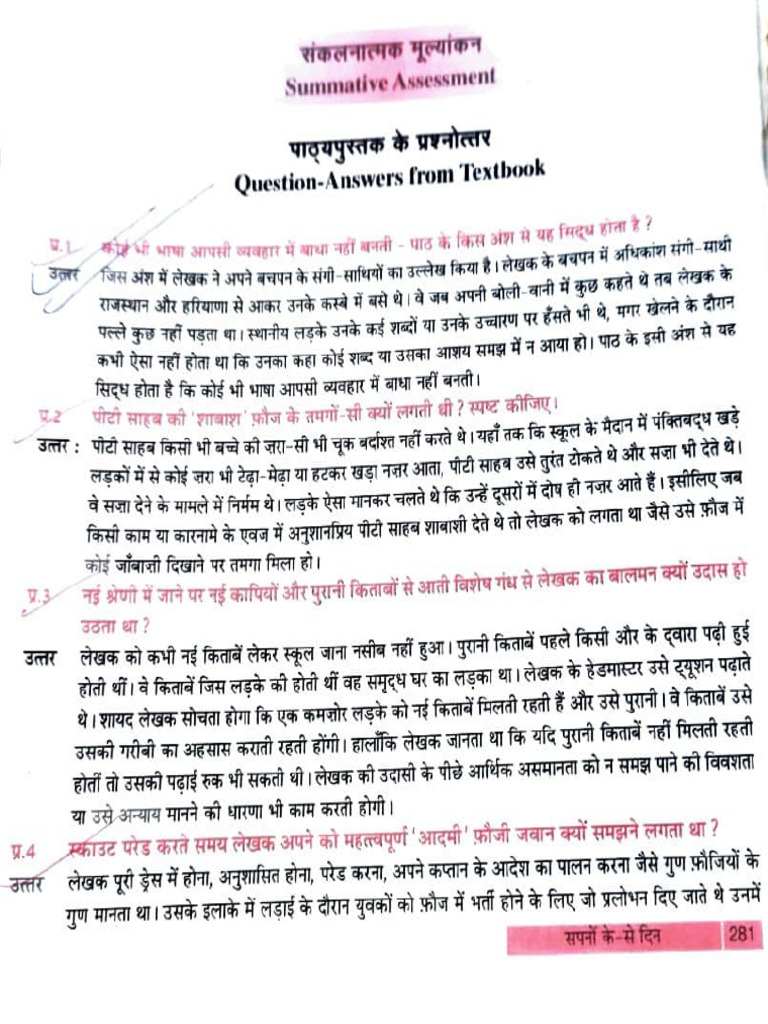 संकलनात्मक मूल्यांकन
Summative Assessment
पाठ्यपुस्तक के प्रश्नोत्तर
Question-Answers from Textbook
प्र.1 कोई भी भाषा आपसी व्यवहार में बाधा नहीं बनती - पाठ के किस अंश से यह सिद्ध होता है ?
उत्तर जिस अंश में लेखक ने अपने बचपन के संगी-साथियों का उल्लेख किया है। लेखक के बचपन में अधिकांश संगी-साथी
राजस्थान और हरियाणा से आकर उनके कस्बे में बसे थे। वे जब अपनी बोली-वानी में कुछ कहते थे तब लेखक के
पल्ले कुछ नहीं पड़ता था। स्थानीय लड़के उनके कई शब्दों या उनके उच्चारण पर हँसते भी थे, मगर खेलने के दौरान
कभी ऐसा नहीं होता था कि उनका कहा कोई शब्द या उसका आशय समझ में न आया हो। पाठ के इसी अंश से यह
सिद्ध होता है कि कोई भी भाषा आपसी व्यवहार में बाधा नहीं बनती।
प्र.2 पीटी साहब की 'शाबाश' फ़ौज के तमगों-सी क्यों लगती थी ? स्पष्ट कीजिए।
उत्तर : पीटी साहब किसी भी बच्चे की ज़रा-सी भी चूक बर्दाश्त नहीं करते थे। यहाँ तक कि स्कूल के मैदान में पंक्तिबद्ध खड़े
लड़कों में से कोई ज़रा भी टेढ़ा-मेढ़ा या हटकर खड़ा नज़र आता, पीटी साहब उसे तुरंत टोकते थे और सज़ा भी देते थे।
वे सज़ा देने के मामले में निर्मम थे। लड़के ऐसा मानकर चलते थे कि उन्हें दूसरों में दोष ही नज़र आते हैं। इसीलिए जब
किसी काम या कारनामे के एवज में अनुशानप्रिय पीटी साहब शाबाशी देते थे तो लेखक को लगता था जैसे उसे फ़ौज में
कोई जाँबाज़ी दिखाने पर तमगा मिला हो।
प्र.3 नई श्रेणी में जाने पर नई कापियों और पुरानी किताबों से आती विशेष गंध से लेखक का बालमन क्यों उदास हो
उठता था ?
उत्तर लेखक को कभी नई किताबें लेकर स्कूल जाना नसीब नहीं हुआ। पुरानी किताबें पहले किसी और के द्वारा पढ़ी हुई
होती थीं। वे किताबें जिस लड़के की होती थीं वह समृद्ध घर का लड़का था। लेखक के हेडमास्टर उसे ट्यूशन पढ़ाते
थे। शायद लेखक सोचता होगा कि एक कमज़ोर लड़के को नई किताबें मिलती रहती हैं और उसे पुरानी। वे किताबें उसे
उसकी गरीबी का अहसास कराती रहती होंगी। हालाँकि लेखक जानता था कि यदि पुरानी किताबें नहीं मिलती रहती
होतीं तो उसकी पढ़ाई रुक भी सकती थी। लेखक की उदासी के पीछे आर्थिक असमानता को न समझ पाने की विवशता
या उसे अन्याय मानने की धारणा भी काम करती होगी।
प्र.4 स्काउट परेड करते समय लेखक अपने को महत्वपूर्ण 'आदमी' फ़ौजी जवान क्यों समझने लगता था ?
उत्तर लेखक पूरी ड्रेस में होना, अनुशासित होना, परेड करना, अपने कप्तान के आदेश का पालन करना जैसे गुण फ़ौजियों के
गुण मानता था। उसके इलाके में लड़ाई के दौरान युवकों को फ़ौज में भर्ती होने के लिए जो प्रलोभन दिए जाते थे उनमें
सपनों के-से दिन 281